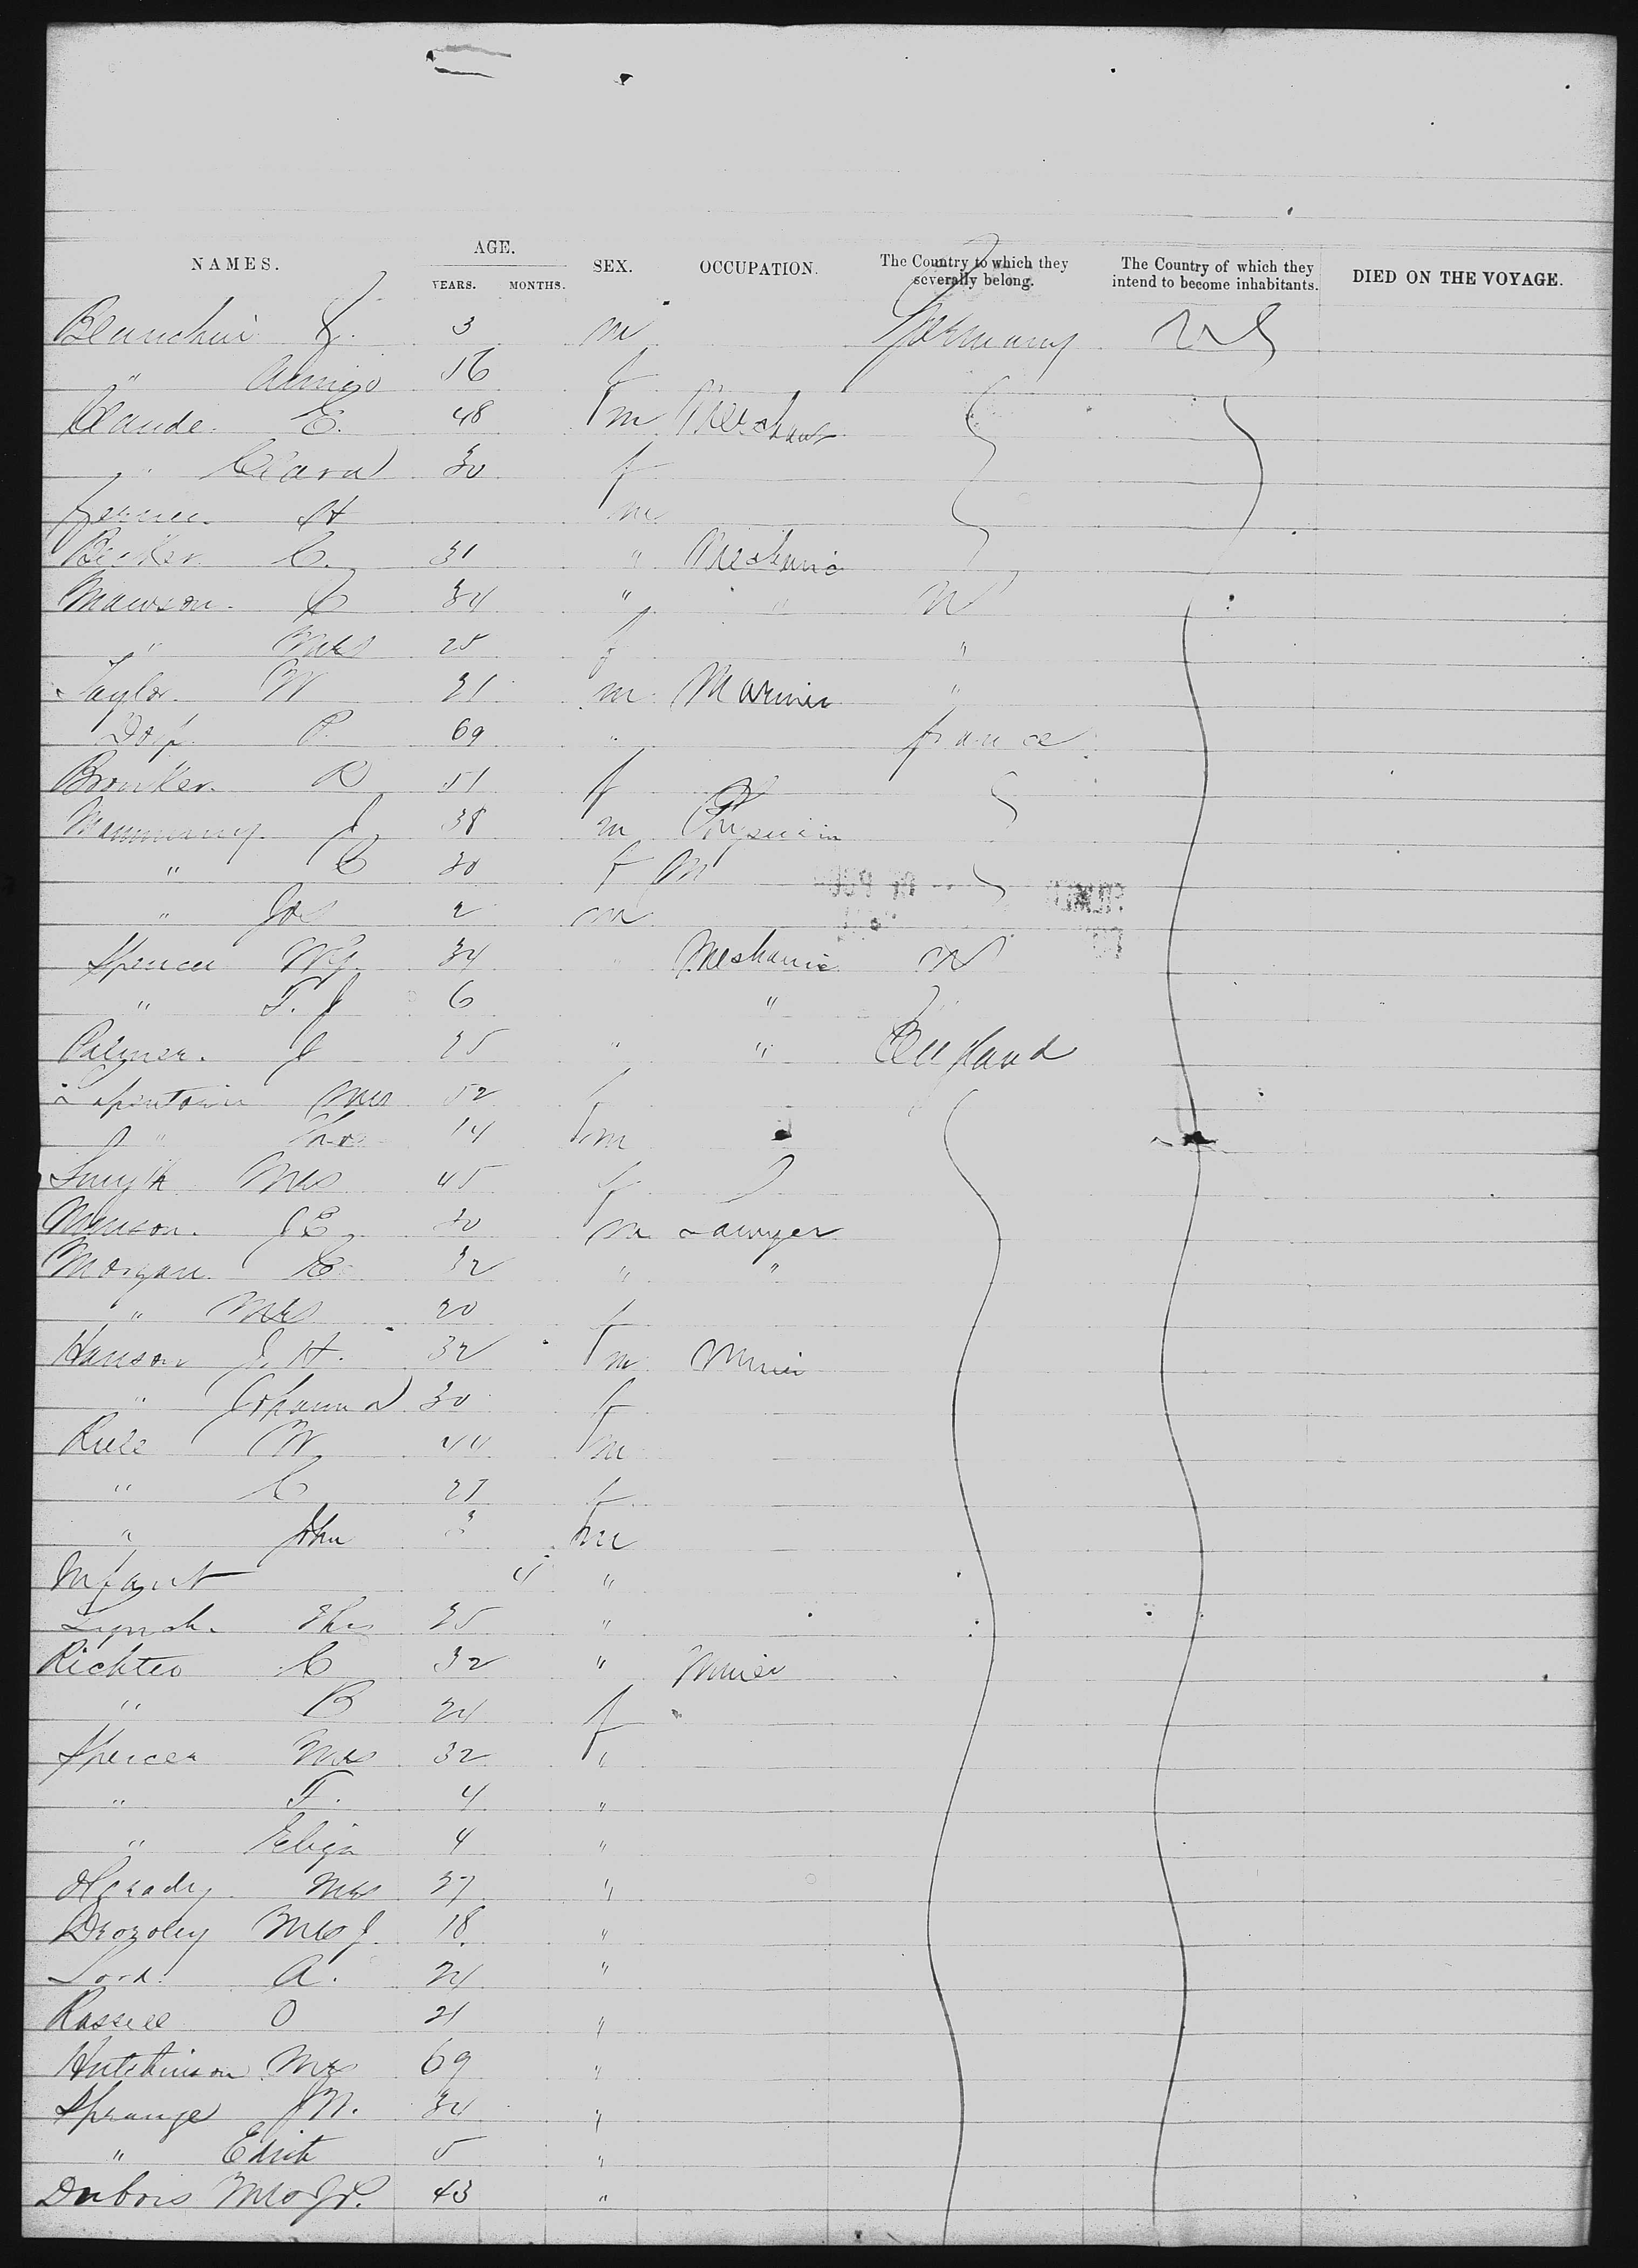 NAMES. AGE. YEARS. MONTHS. SEX. OCCUPATION. The Country to which they severally belong. The Country of which they intend to become inhabitants. DIED ON THE VOYAGE.
3 m Germany US
" 56 f
Claude E. 48 m Merchant
" Clara 30 f
H m
C. 31 " Mechanic
Mawson C 34 " " US
" Mrs 25 f "
Taylor W 31 m Mariner "
P. 69 " France
51 f
J 38 m Physician
" C 30 f
" Jos 2 m
Spencer Wm 34 " Mechanic US
" T. J 6 "
Palmer J 25 " " England
Mrs 52 f
" 14 m
Smyth Mrs 45 f
Munson J E 30 m Lawyer
Morgan C 32 " "
" Mrs 20 f
Hanson J. H. 32 m Miner
" Johanna 30 f
Rule W 44 m
" C 27 f
" John 3 m
Infant "
Lynch Thos 35 "
C 32 " Miner
" B 24 f
Spencer Mrs 32 "
" F. 4 "
" Eliza 4 "
Mrs 37 "
Mrs J. 18 "
Lord A. 24 "
O 21 "
Hutchinson Mrs 69 "
Sprange J M. 34 "
" Edith 5 "
Dubois Mrs 43 "